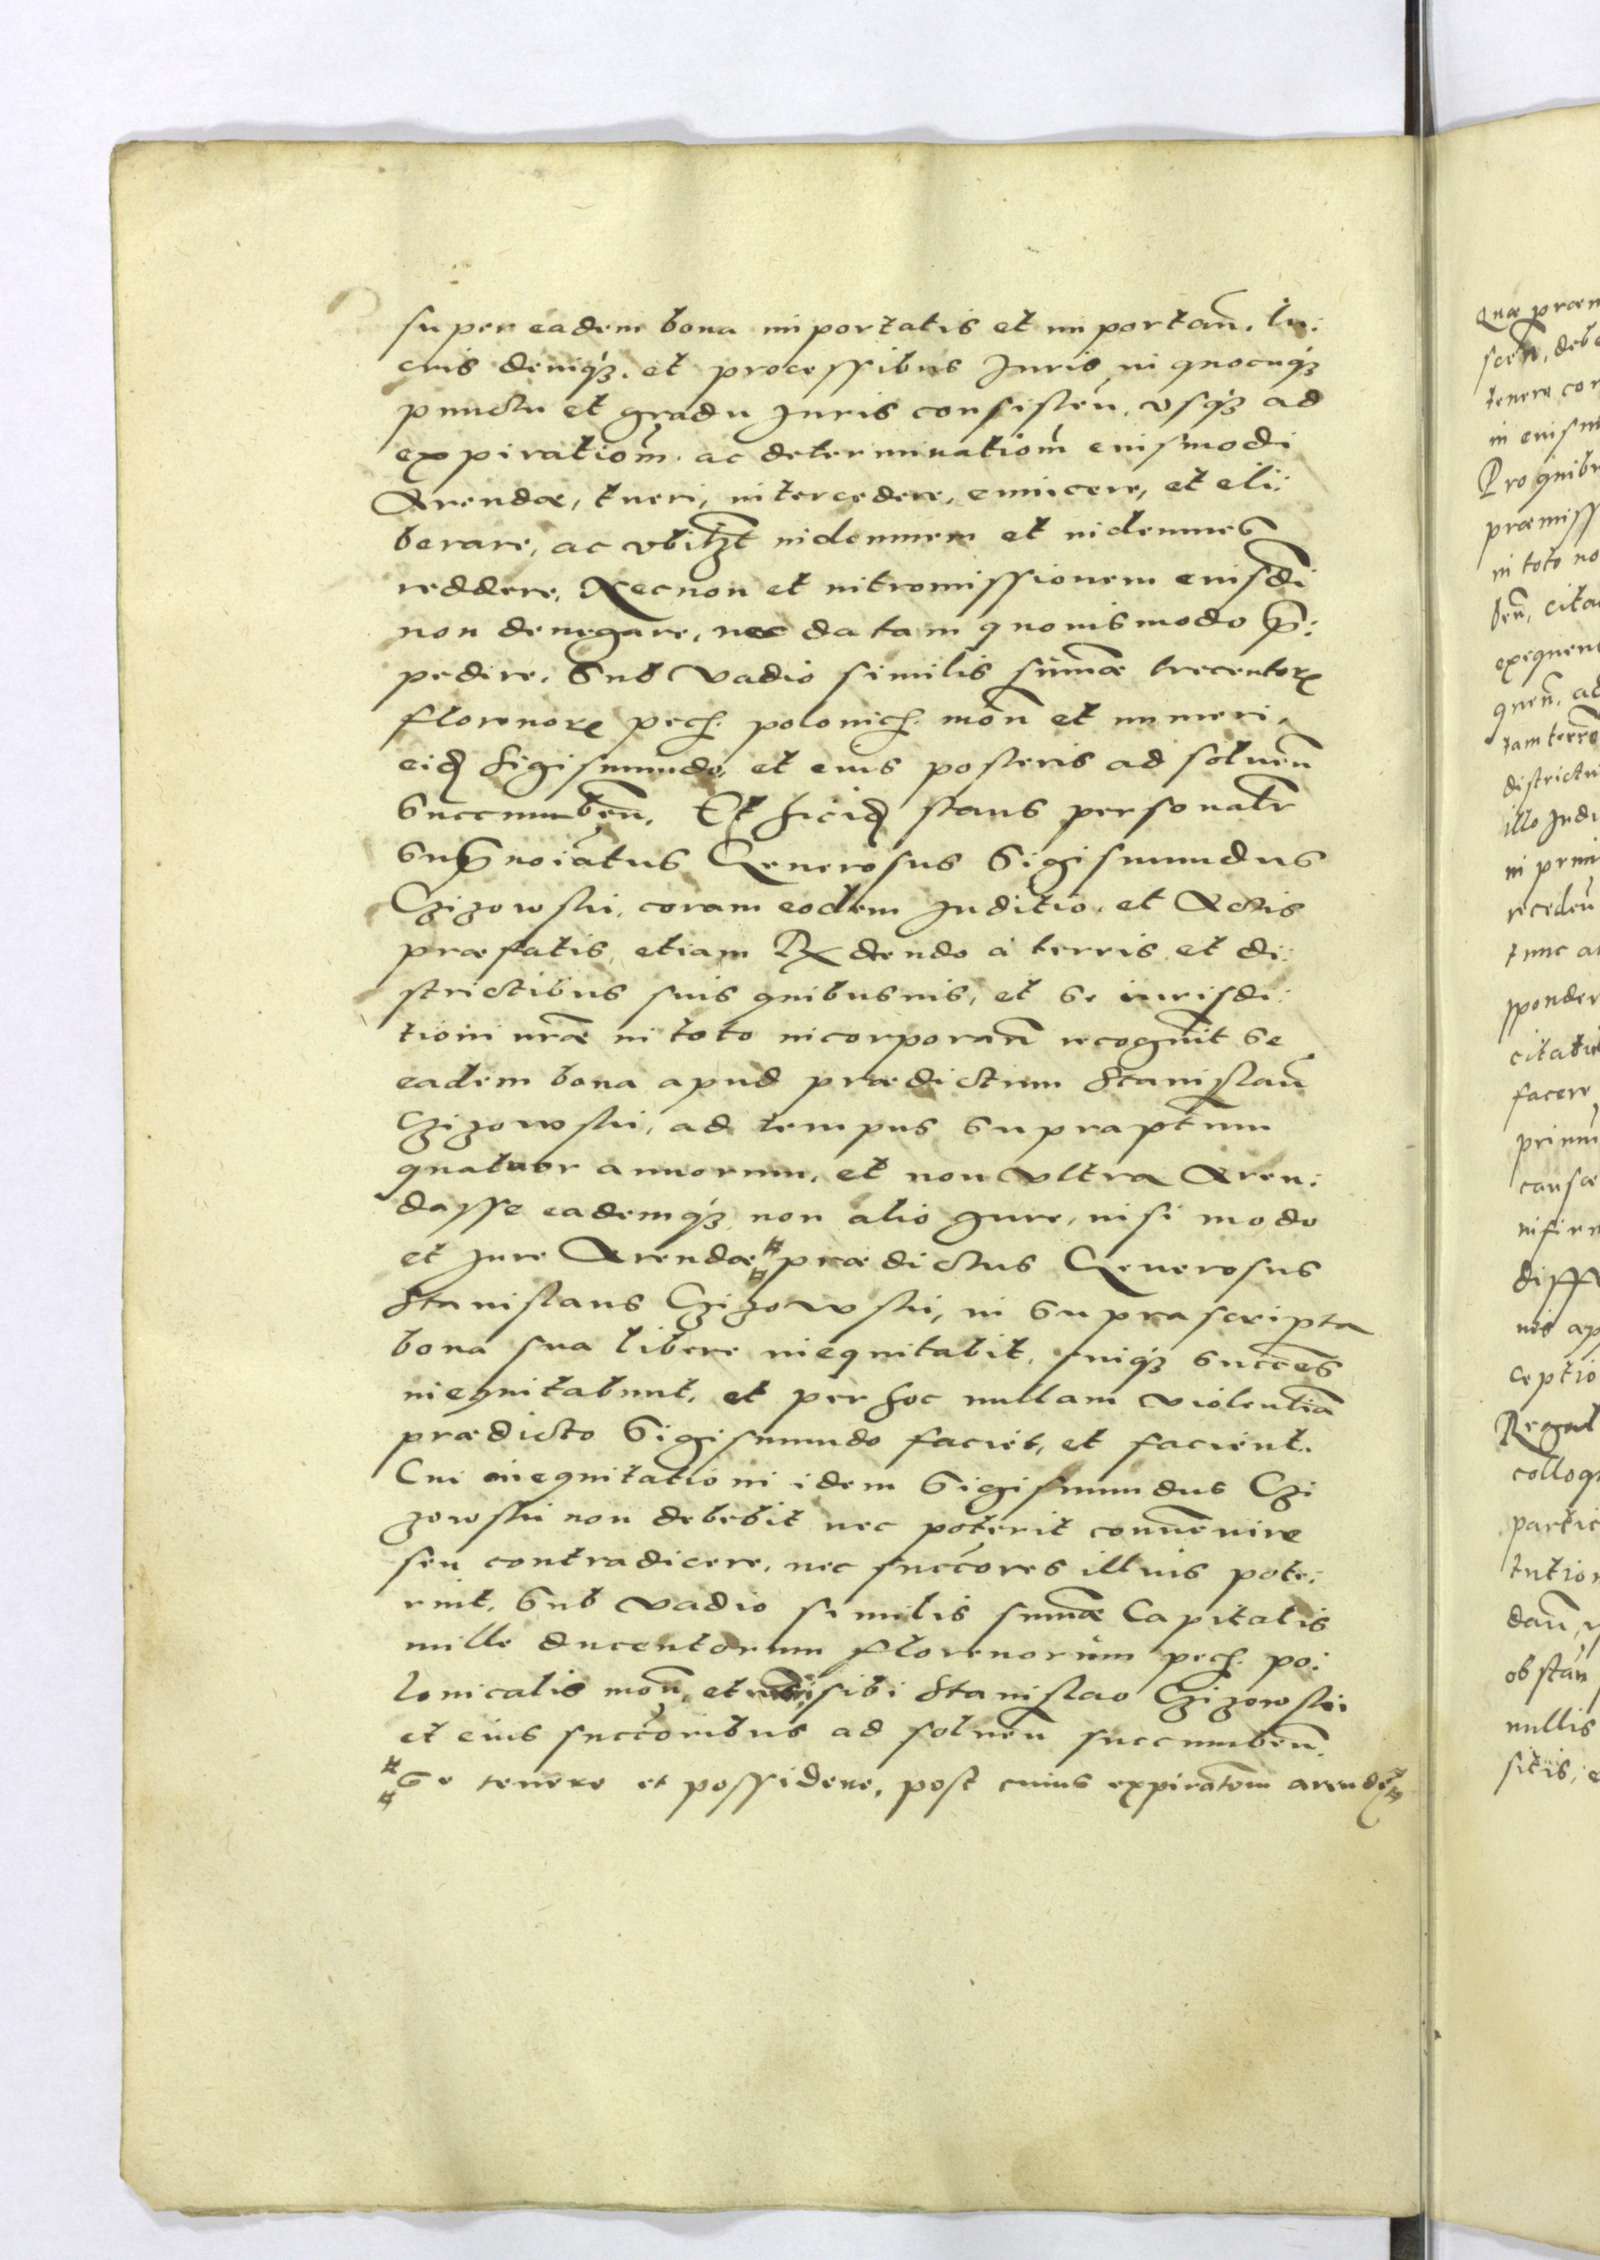 super eadem bona importatis et importañ. lu:
cris deniqȝ. et processibus Juris in quocuqȝ
punctu et gradu Juris consisteñ, vsqȝ ad
expiratiom̃. ac determinatiom̃ euismodi
Arendæ, tueri, intercedere, euincere, et eli:
berare, ac vbilȝt indemnem et indemnes
reddere, Necnon et intromissionem eiusdi
non denegare, nec datam quouismodo
pedire. Sub vadio similis sum̃æ trecentorꝝ
florenorꝝ pech. polonich. moñ et numeri,
eidꝫ Sigismundo, et eius posteris ad solueñ
succumbeñ. Et hicidꝫ stans personalr̃
Sup̃noiatus Generosus Sigismundus
Czizowski, coram eodem Juditio, et Actis
præfatis, etiam Rẽdendo à terris et di:
strictibus suis quibusuis, et se iurisdi:
tioni nr̃æ in toto incorporañ recognuit Se
eadem bona apud prædictum Stanislaũ
Czizowski, ad tempus supraptum
quatuor annorum, et non vltra Aren:
dasse eademqȝ non alio Jure, nisi modo
et Jure Arendæ # prædictus Generosus
Stanislaus Czizowski, in suprascripta
bona sua libere inequitabit, suiqȝ succes̃
inequitabunt, et per hoc nullam violentiã
prædicto Sigismundo faciet, et facient.
Cui inequitationi idem Sigismundus Czi
zowski non debebit nec poterit conuenire
seu contradicere, nec succ̃ores illius pote:
runt, Sub vadio similis sum̃æ Capitalis
mille ducentorum florenorum pech. po:
lonicalis moñ, et sibi Stanislao Czizowski
et eius succ̃oribus ad solueñ succumbeñ.
# Se tenere et possidere, post cuius expiratõem arendæ #
Quæ præm
sceñ, deb
tenere co
in euism
Pro quib
præmiss
in toto no
beñ, cita
exequen
queñ, ad
tam terr
districtu
illo Judi
in prim
recedeñ
tunc a
sponder
citati
facere
primũ
causæ
infirm
diff
nis ap
ceptio
Regal
colloq
partic
tution
dañ,
obstañ
nullis
sitis, e